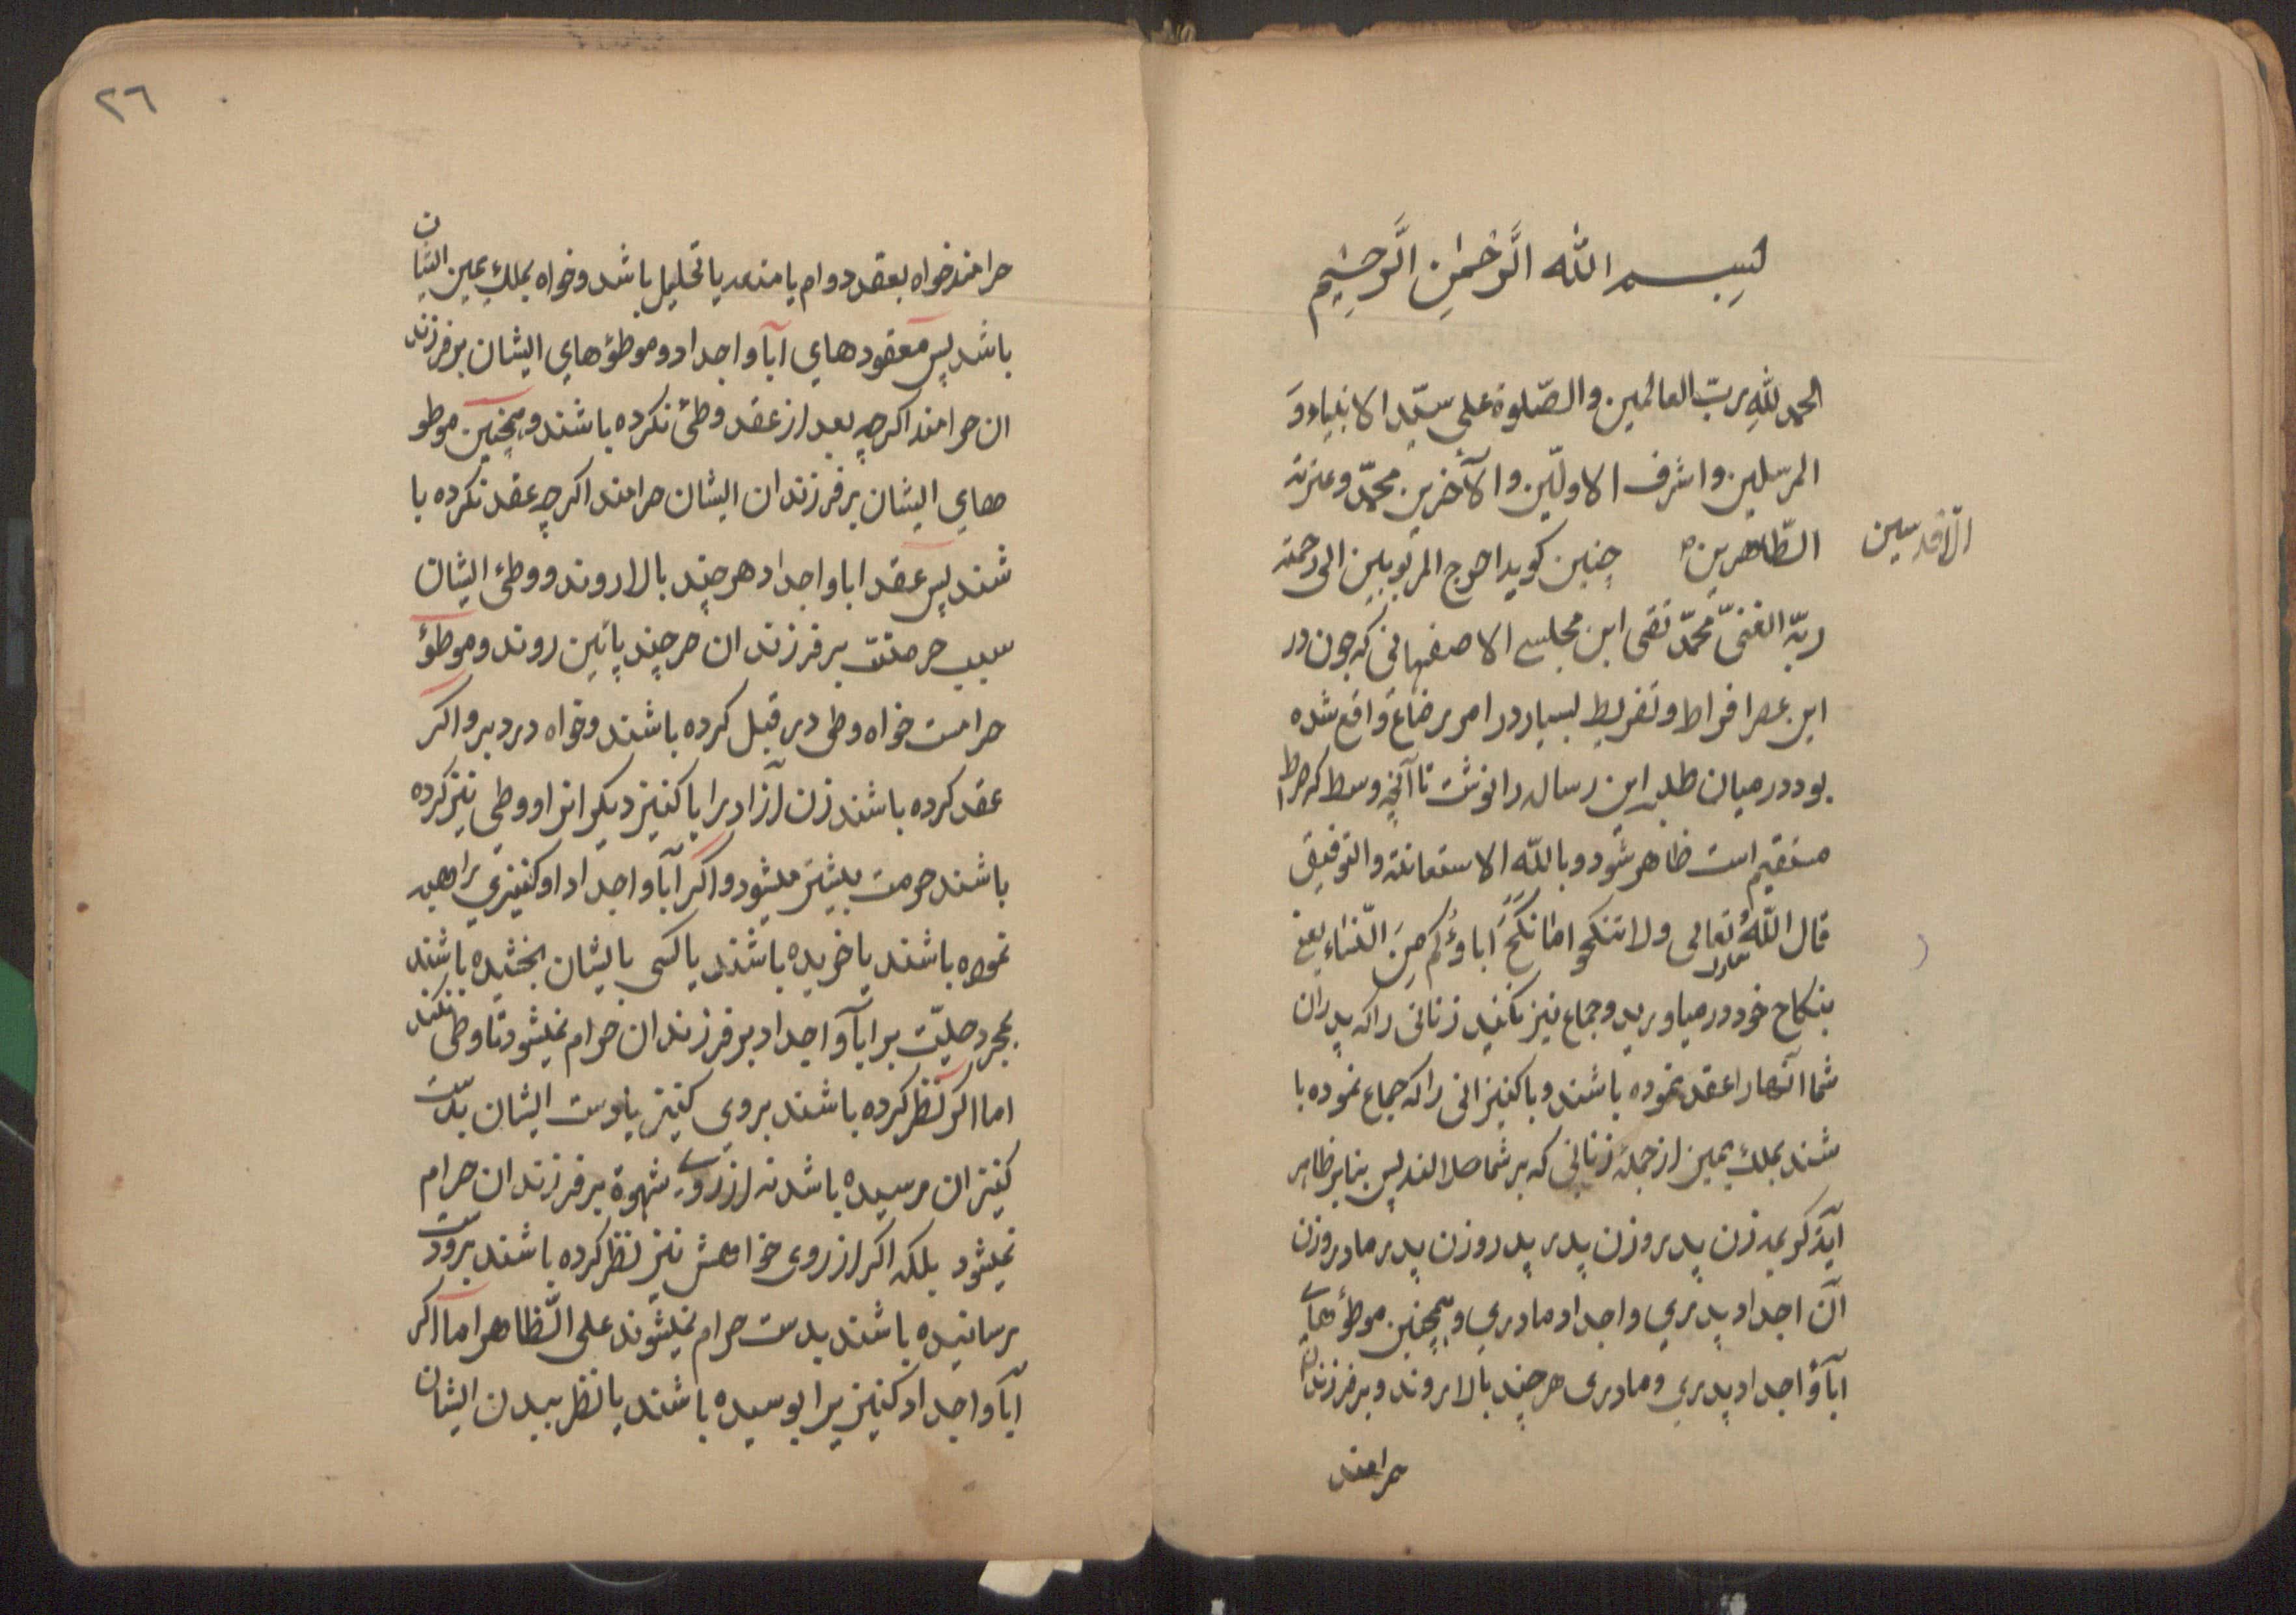 بسم الله الرَّحمٰنِ الرَّحِیمِ
الحمد للّٰهِ ربّ العالمین والصّلوة علی سیّد الانبیاء وَ
المرسلین واشرف الاولّین والآخرین محمّد وعترته
الاقدسین
الطّاهرین چنین کوید احوج المربوبین الی رحمة
ربّه الغنیّ محمّد تقی ابن مجلسی الاصفهانی که چون در
این عصر افراط وتفریط بسیار در امر رضاع واقع شده
بود در میان طلبه این رساله را نوشت تا آنچه وسط که صراط
مستقیم است ظاهر شود وبالله الاستعانة والتوفیق
قال اللّهُ تعالی ولا تنکحوا ما نَکَحَ اباؤُکم مِنَ النّساء یعنی
بنکاح خود در میاورید وجماع نیز نکنید زنانی را که پدران مادر
شما آنها را عقد نموده باشند وبا کنیزانی را که جماع نموده با
شند بملك یمین از جملهٔ زنانی که بر شما حلالند پس بنابر ظاهر
آیهٔ کریمه زن پدر وزن پدر پدر وزن پدر مادر وزن
آن اجداد پدری واجداد مادری وهمچنین موطؤهای
اباؤ اجداد پدری ومادری هر چند بالا روند وبر فرزندان
حرامند
٢٦
حرامند خواه بعقد دوام یا متعه یا تحلیل باشد وخواه بملكِ یمین ایشان
باشد پس معقودهای آبآ واجداد وموطؤهای ایشان بر فرزند
ان حرامند اکرچه بعد از عقد وطئ نکرده باشند وهمچنین موطو
های ایشان بر فرزندان ایشان حرامند اکرچه عقد نکرده با
شند پس عقد ابا واجداد هر چند بالا روند ووطئ ایشان
سبب حرمتت بر فرزندان هر چند پائین روند وموطؤ
حرامست خواه وطی در قبل کرده باشند وخواه در دبر واکر
عقد کرده باشند زن آزاد یرا یا کنیز دیکرانرا ووطی نیز کرده
باشند حرمت بیشتر میشود واکر آبآ واجداد او کنیزی را هبه
نموده باشند یا خریده باشند یا کسی بایشان بخشیده باشند
بمجرد حلیّت بر ابآ واجداد بر فرزندان حرام نمیشود تا وطی نکنند
اما اکر نظر کرده باشند بروی کنیز یا دست ایشان بدست
کنیزان رسیده باشد نه از روی شهوة بر فرزندان حرام
نمیشود بلکه اکر از روی خواهش نیز نظر کرده باشند برو دست
رسانیده باشند بدست حرام نمیشوند علی الظّاهر اما اکر
آبآ واجداد کنیز یرا بوسیده باشند یا نظر ببدن ایشان